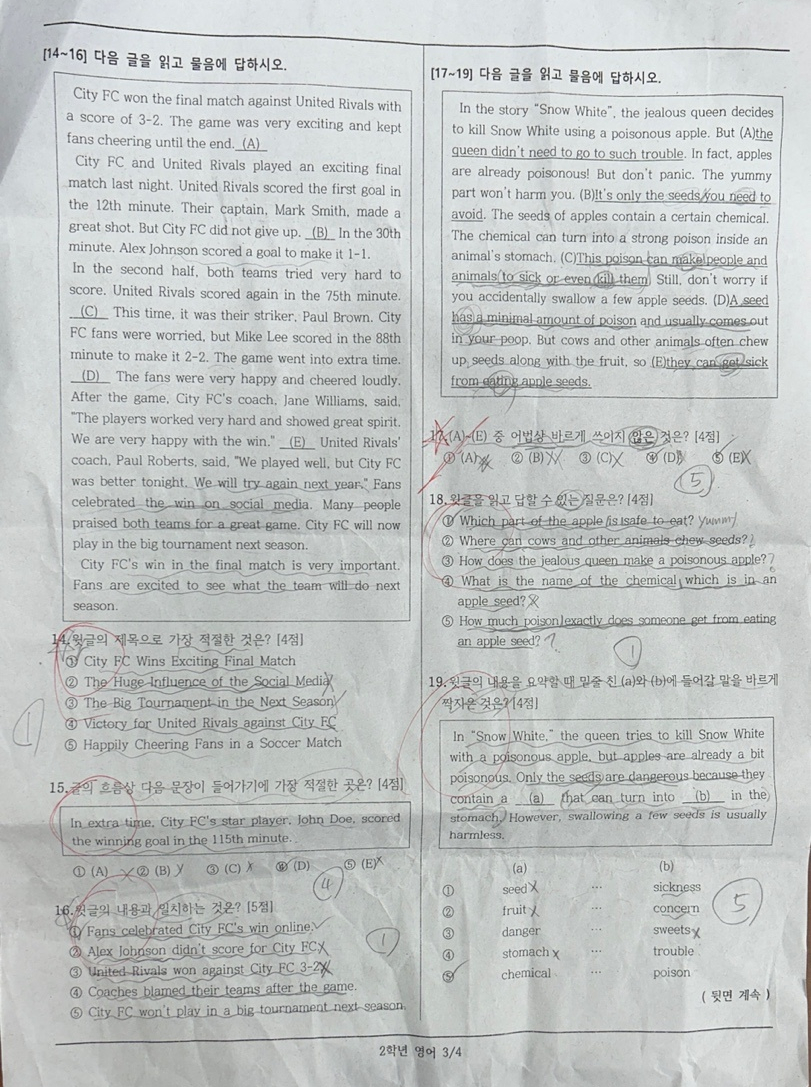 [14~16] 다음 글을 읽고 물음에 답하시오.
City FC won the final match against United Rivals with
a score of 3-2. The game was very exciting and kept
fans cheering until the end. (A)
City FC and United Rivals played an exciting final
match last night. United Rivals scored the first goal in
the 12th minute. Their captain, Mark Smith, made a
great shot. But City FC did not give up. (B) In the 30th
minute. Alex Johnson scored a goal to make it 1-1.
In the second half, both teams tried very hard to
score. United Rivals scored again in the 75th minute.
(C) This time, it was their striker, Paul Brown. City
FC fans were worried, but Mike Lee scored in the 88th
minute to make it 2-2. The game went into extra time.
(D) The fans were very happy and cheered loudly.
After the game, City FC's coach, Jane Williams, said,
"The players worked very hard and showed great spirit.
We are very happy with the win." (E) United Rivals'
coach, Paul Roberts, said, "We played well, but City FC
was better tonight. We will try again next year." Fans
celebrated the win on social media. Many people
praised both teams for a great game. City FC will now
play in the big tournament next season.
City FC's win in the final match is very important.
Fans are excited to see what the team will do next
season.
14. 윗글의 제목으로 가장 적절한 것은? [4점]
① City FC Wins Exciting Final Match
② The Huge Influence of the Social Media
③ The Big Tournament in the Next Season
④ Victory for United Rivals against City FC
⑤ Happily Cheering Fans in a Soccer Match
1
15. 글의 흐름상 다음 문장이 들어가기에 가장 적절한 곳은? [4점]
In extra time, City FC's star player, John Doe, scored
the winning goal in the 115th minute.
① (A) ② (B) ③ (C) ④ (D) ⑤ (E)
4
16. 윗글의 내용과 일치하는 것은? [5점]
① Fans celebrated City FC's win online.
② Alex Johnson didn't score for City FC.
③ United Rivals won against City FC 3-2.
④ Coaches blamed their teams after the game.
⑤ City FC won't play in a big tournament next season.
1
[17~19] 다음 글을 읽고 물음에 답하시오.
In the story "Snow White", the jealous queen decides
to kill Snow White using a poisonous apple. But (A)the
queen didn't need to go to such trouble. In fact, apples
are already poisonous! But don't panic. The yummy
part won't harm you. (B)It's only the seeds you need to
avoid. The seeds of apples contain a certain chemical.
The chemical can turn into a strong poison inside an
animal's stomach. (C)This poison can make people and
animals to sick or even kill them. Still, don't worry if
you accidentally swallow a few apple seeds. (D)A seed
has a minimal amount of poison and usually comes out
in your poop. But cows and other animals often chew
up seeds along with the fruit, so (E)they can get sick
from eating apple seeds.
17. (A)~(E) 중 어법상 바르게 쓰이지 않은 것은? [4점]
① (A) ② (B) ③ (C) ④ (D) ⑤ (E)
5
18. 윗글을 읽고 답할 수 있는 질문은? [4점]
① Which part of the apple is safe to eat? yummy
② Where can cows and other animals chew seeds? ?
③ How does the jealous queen make a poisonous apple? ?
④ What is the name of the chemical which is in an
apple seed?
⑤ How much poison exactly does someone get from eating
an apple seed? ?
1
19. 윗글의 내용을 요약할 때 밑줄 친 (a)와 (b)에 들어갈 말을 바르게
짝지은 것은? [4점]
In "Snow White," the queen tries to kill Snow White
with a poisonous apple, but apples are already a bit
poisonous. Only the seeds are dangerous because they
contain a (a) that can turn into (b) in the
stomach. However, swallowing a few seeds is usually
harmless.
(a) (b)
① seed … sickness
② fruit … concern
③ danger … sweets
④ stomach … trouble
⑤ chemical … poison
5
( 뒷면 계속 )
2학년 영어 3/4